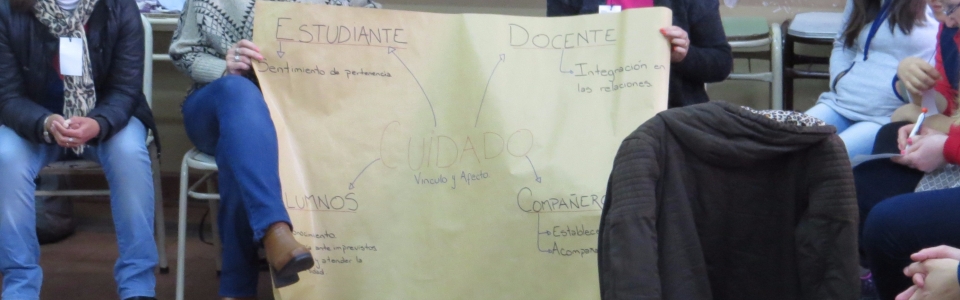 ESTUDIANTE
Sentimiento de pertenencia
DOCENTE
Integración en
las relaciones
CUIDADO
Vínculo y Afecto
LUMNOS
ante imprevistos
y atender la
COMPAÑERO
Establec
Acompaña